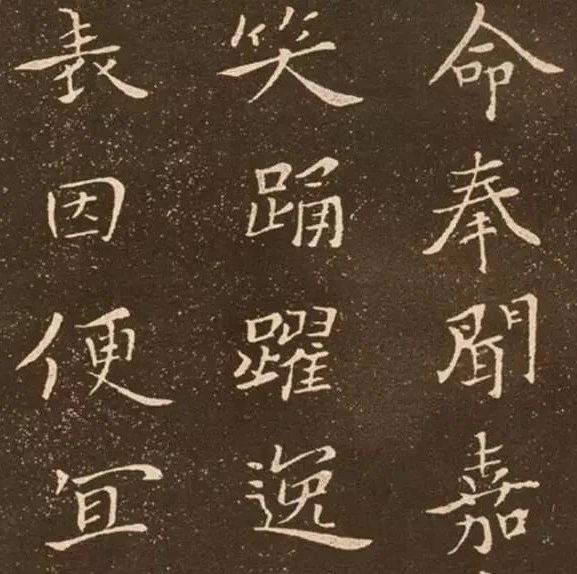 命奉聞嘉
笑踊躍逸
表因便宜